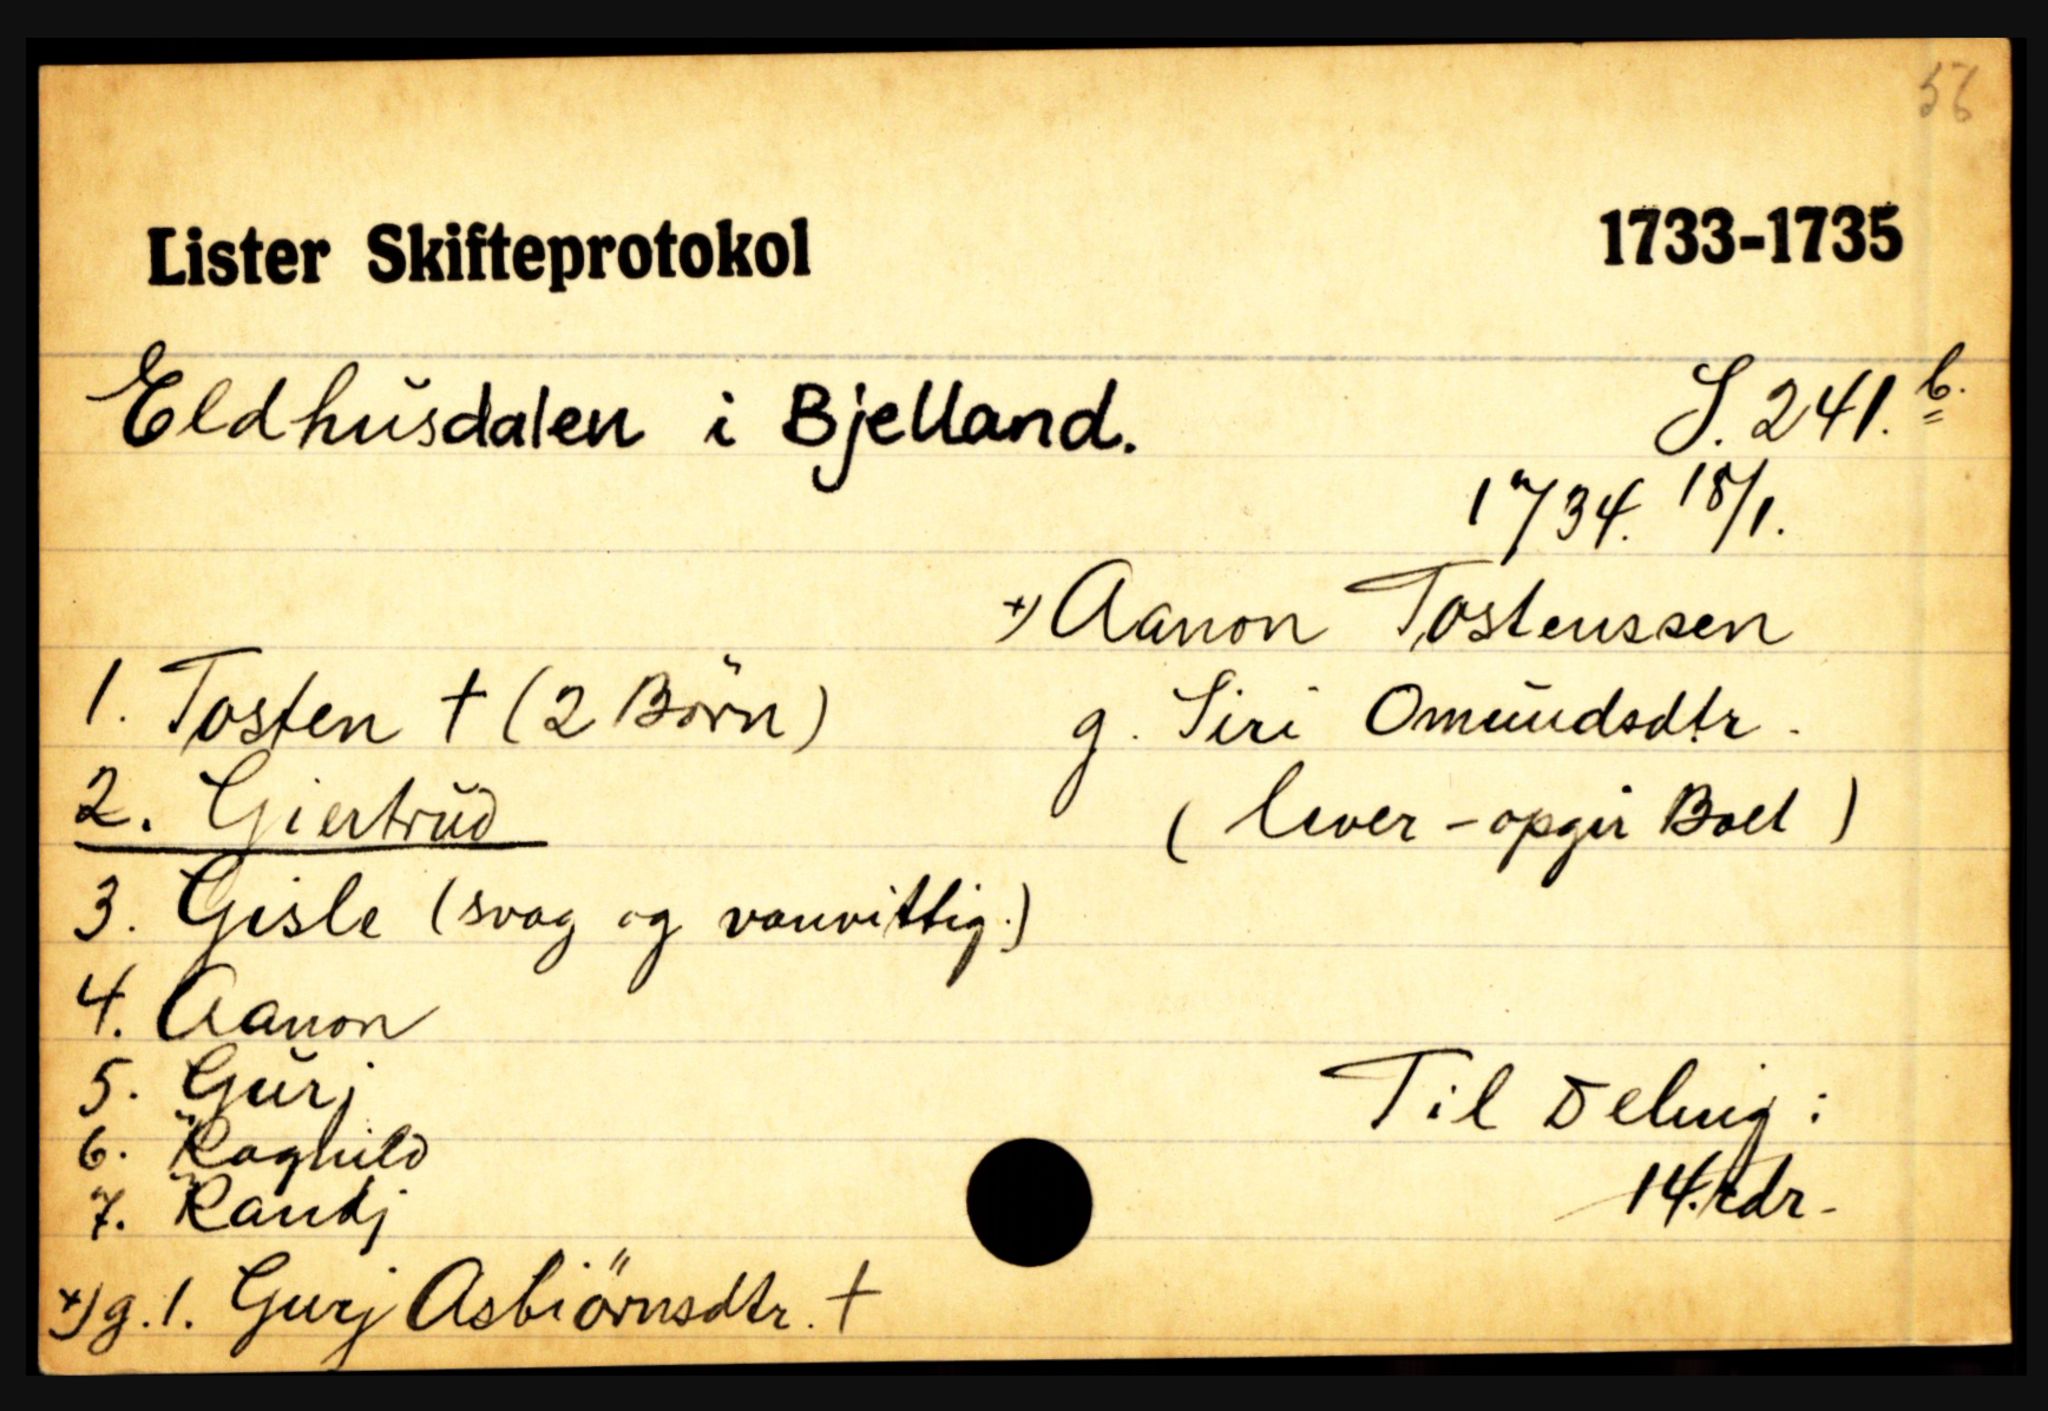 56
Lister Skifteprotokol 1733-1735
Eldhusdalen i Bjelland. S. 241.b.
1734. 18/1.
+) Aanon Tostenssen
1. Tosten † (2 Börn) g. Siri Omundsdtr.
2. Giertrud ( lever - opgir Boet )
3. Gisle (svag og vanvittig.)
4. Aanon
5. Gurj Til Deling:
6. Ragnild 14. rdr-
7. Randj
+) g. 1. Gurj Asbiörnsdtr. †